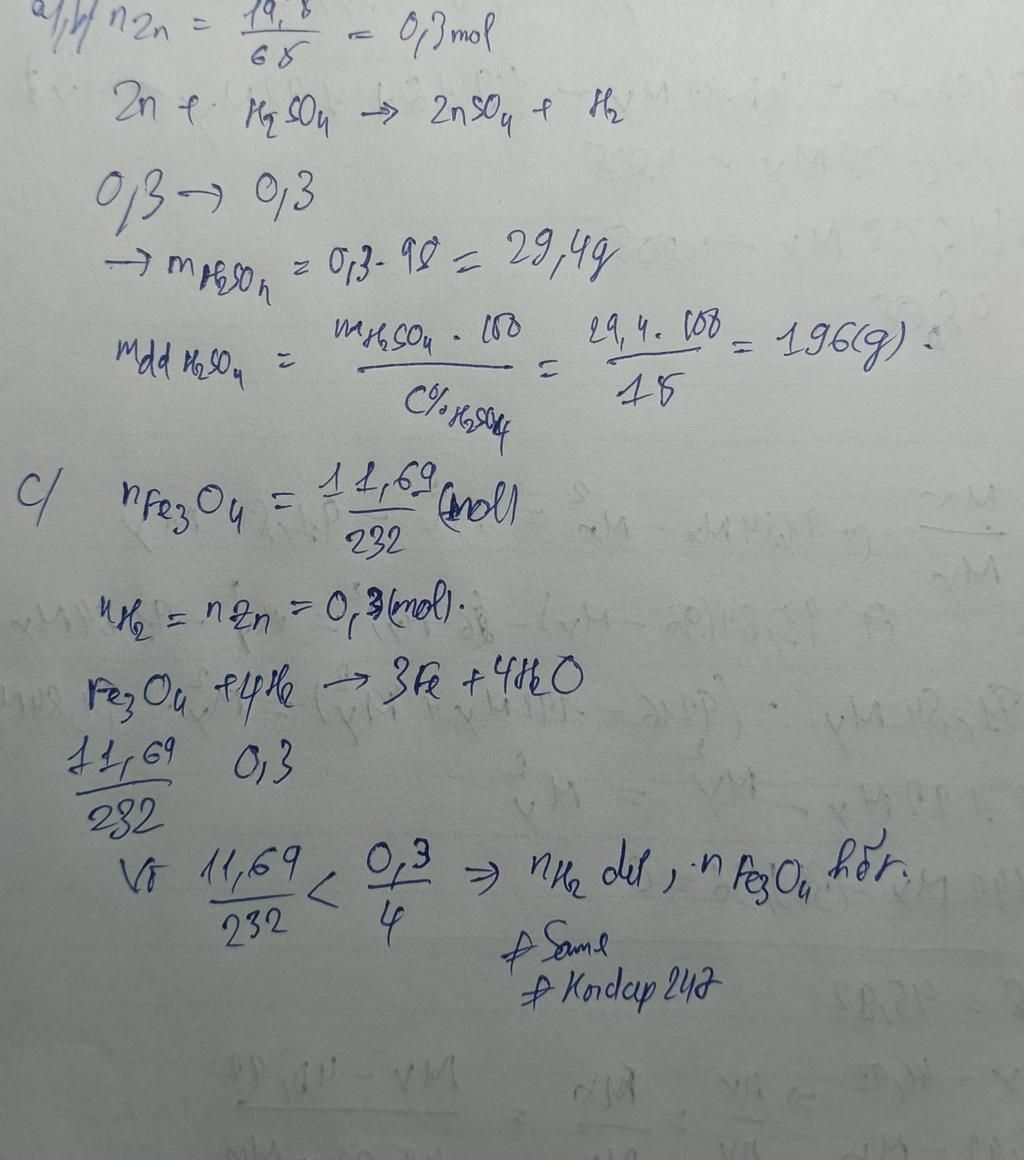 a/,b/ nZn = 19,5/65 = 0,3 mol
Zn + H₂SO₄ → ZnSO₄ + H₂
0,3 → 0,3
→ mH₂SO₄ = 0,3 · 98 = 29,4g
mdd H₂SO₄ = mH₂SO₄ · 100 / C%H₂SO₄ = 29,4 · 100 / 15 = 196(g) .
C/ nFe₃O₄ = 11,69/232 (mol)
nH₂ = nZn = 0,3(mol).
Fe₃O₄ + 4H₂ → 3Fe + 4H₂O
11,69/232 0,3
Vì 11,69/232 < 0,3/4 => nH₂ dư, nFe₃O₄ hết.
# Same
# Hoidap247